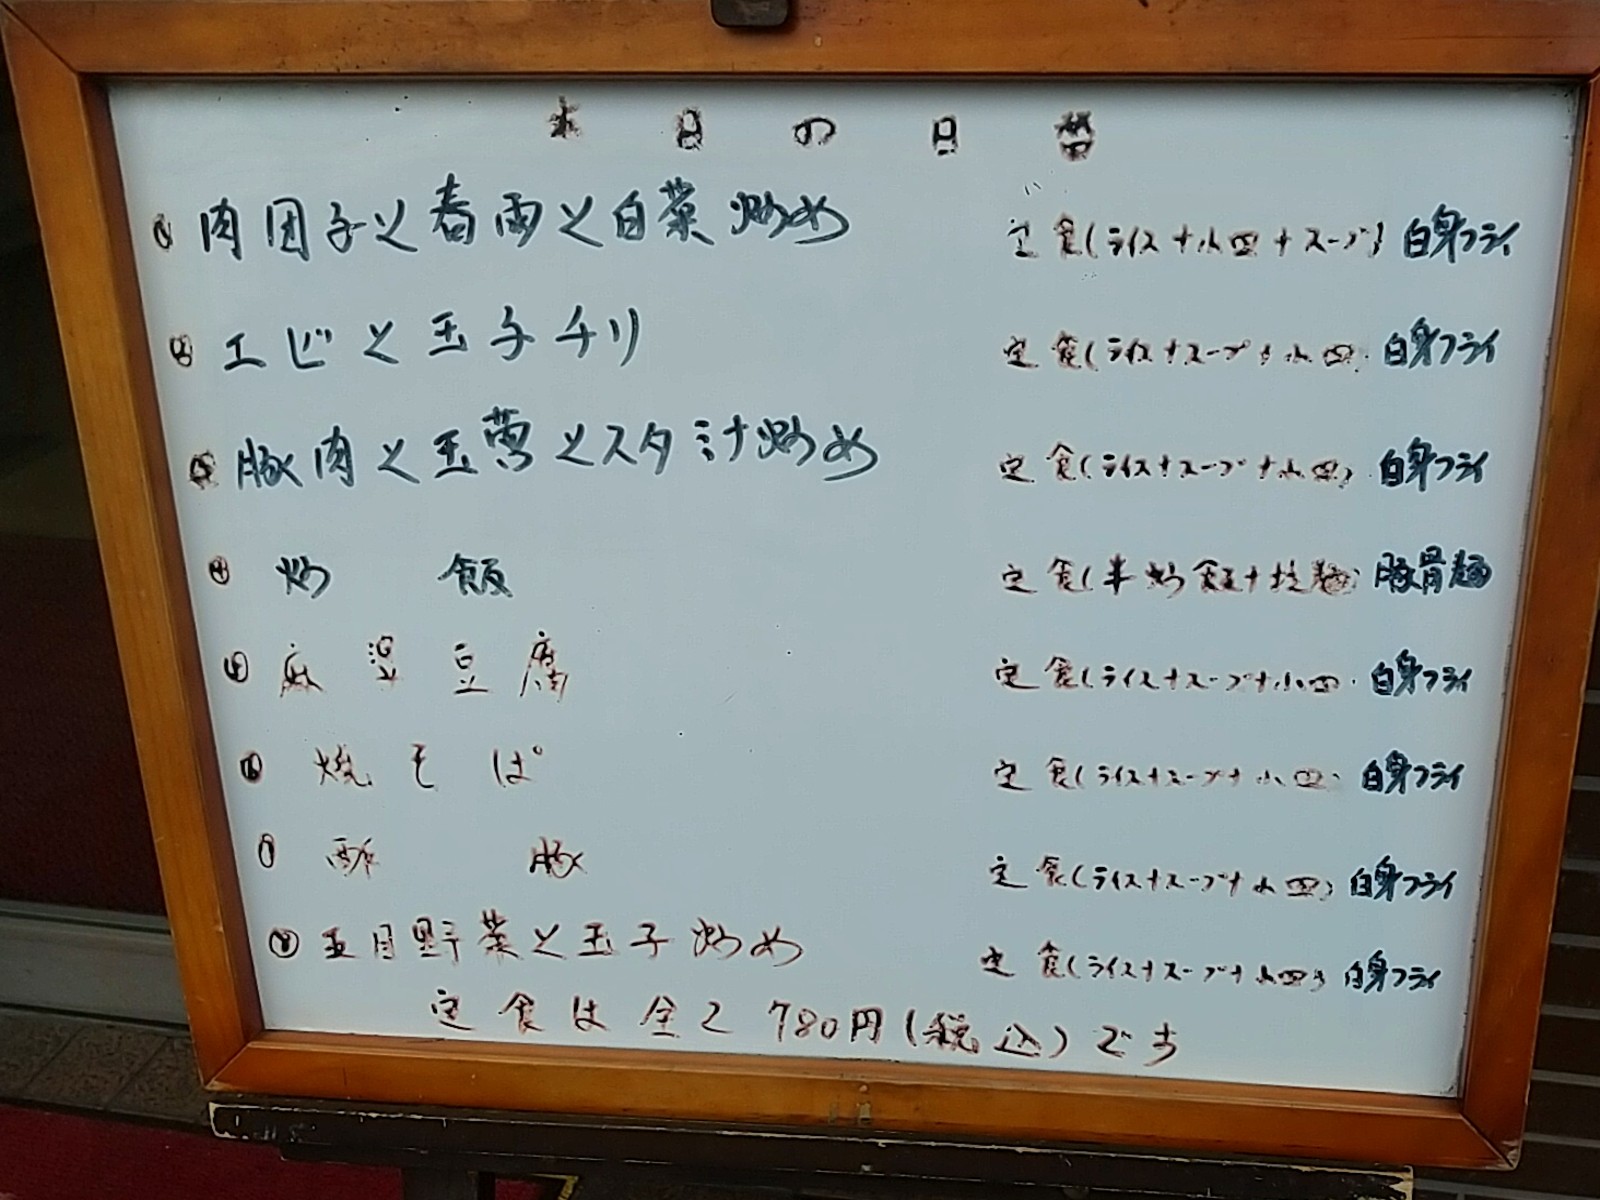 本日の日替
① 肉団子と春雨と白菜炒め 定食(ライス+小皿+スープ) 白身フライ
② エビと玉子チリ 定食(ライス+スープ+小皿) 白身フライ
③ 豚肉と玉葱とスタミナ炒め 定食(ライス+スープ+小皿) 白身フライ
④ 炒飯 定食(半炒飯+拉麺) 豚骨麺
⑤ 麻婆豆腐 定食(ライス+スープ+小皿) 白身フライ
⑥ 焼そば 定食(ライス+スープ+小皿) 白身フライ
⑦ 酢豚 定食(ライス+スープ+小皿) 白身フライ
⑧ 五目野菜と玉子炒め 定食(ライス+スープ+小皿) 白身フライ
定食は全て780円(税込)です